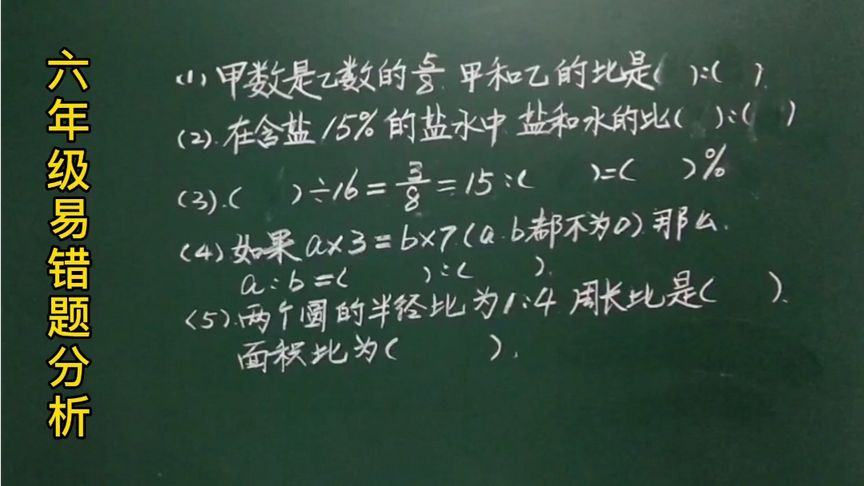 六年级易错题分析
(1) 甲数是乙数的5/8. 甲和乙的比是( ):( )
(2). 在含盐15%的盐水中 盐和水的比( ):( )
(3).( )÷16=3/8=15:( )=( )%
(4) 如果a×3=b×7(a.b都不为0)那么.
a:b=( ):( ).
(5).两个圆的半径比为1:4 周长比是( ).
面积比为( ).